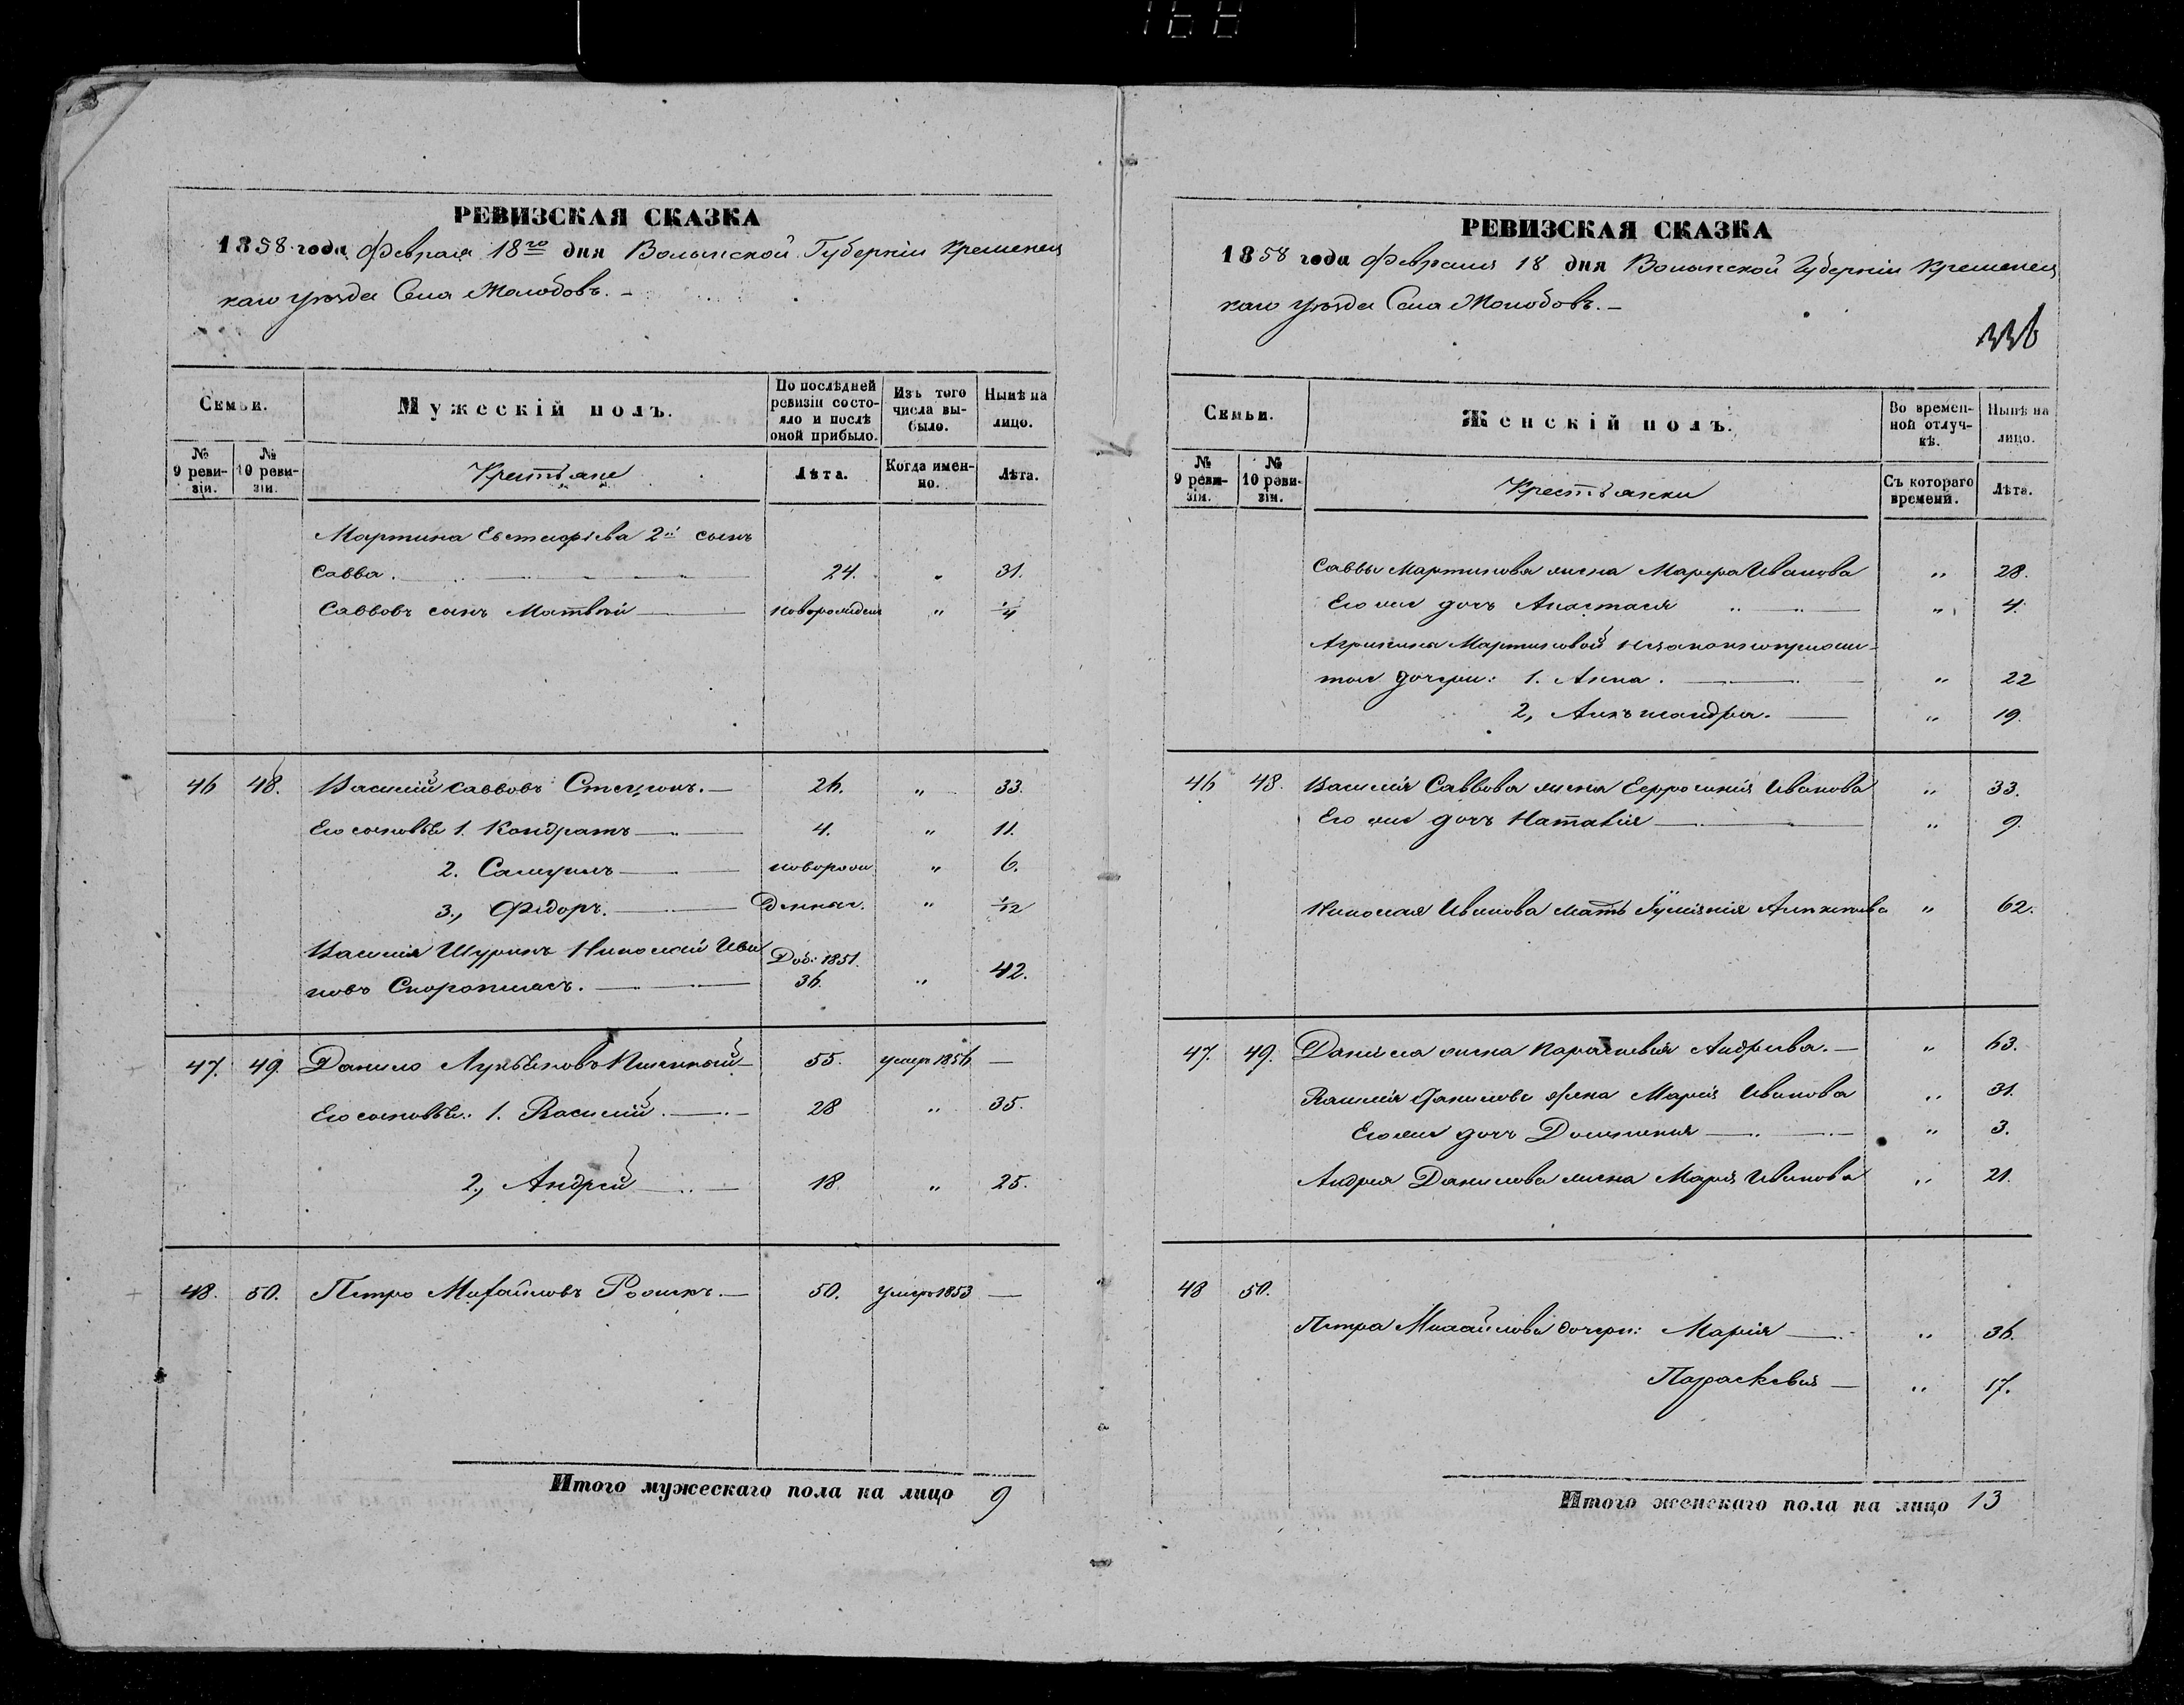 168
РЕВИЗСКАЯ СКАЗКА
1858 года Февраля 18го дня Волынской Губерніи Кременец
каго уѣзда Села Жолобовъ.
Семьи.
Мужескій полъ.
По послѣдней ревизіи состояло и послѣ оной прибыло.
Изъ того числа выбыло.
Нынѣ на лицо.
№ 9 ревизіи.
№ 10 ревизіи.
Крестьяне
Лѣта.
Когда именно.
Лѣта.
Мартина Евстафіева 2й сынъ
Савва. 24. " 31.
Саввовъ сынъ Матвѣй новорожден " 1/4
46 48. Василій Саввовъ 26. " 33.
Его сыновья 1. Кондратъ 4. " 11.
2. Самуилъ новорож " 6.
3., Фёдоръ. денные. " 1/12
Василія Шуринъ Николай Ива Доб: 1851.
новъ 36. " 42.
47. 49. Данило Лукьяновъ 55. умеръ 1856 —
Его сыновья: 1. Василій. 28 " 35.
2., Андрей 18. " 25.
48. 50. Петро Михайловъ 50. умеръ 1853 —
Итого мужескаго пола на лицо 9
РЕВИЗСКАЯ СКАЗКА
1858 года Февраля 18 дня Волынской Губерніи Кременец
каго уѣзда Села Жолобовъ.
336
Семьи.
Женскій полъ.
Во временной отлучкѣ.
Нынѣ на лицо.
№ 9 ревизіи.
№ 10 ревизіи.
Крестьянки
Съ котораго времени.
Лѣта.
Саввы Мартинова жена Марфа Иванова " 28.
Его же дочь Анастасія " 4.
Агрипины Мартиновой незаконноприжи-
тые дочери: 1. Анна. " 22
2, Александра. " 19.
46 48. Василія Саввова жена Ефросинія Иванова " 33.
Его же дочь Наталія " 9.
Николая Иванова мать " 62.
47. 49. Данила жена Параскевія Андреева. " 63.
Василія Данилова жена Марія Иванова " 31.
Его же дочь Домникия " 3.
Андрея Данилова жена Марія Иванова " 21.
48 50.
Петра Михайлова дочери: Марія " 36.
Параскевия " 17.
Итого женскаго пола на лицо 13